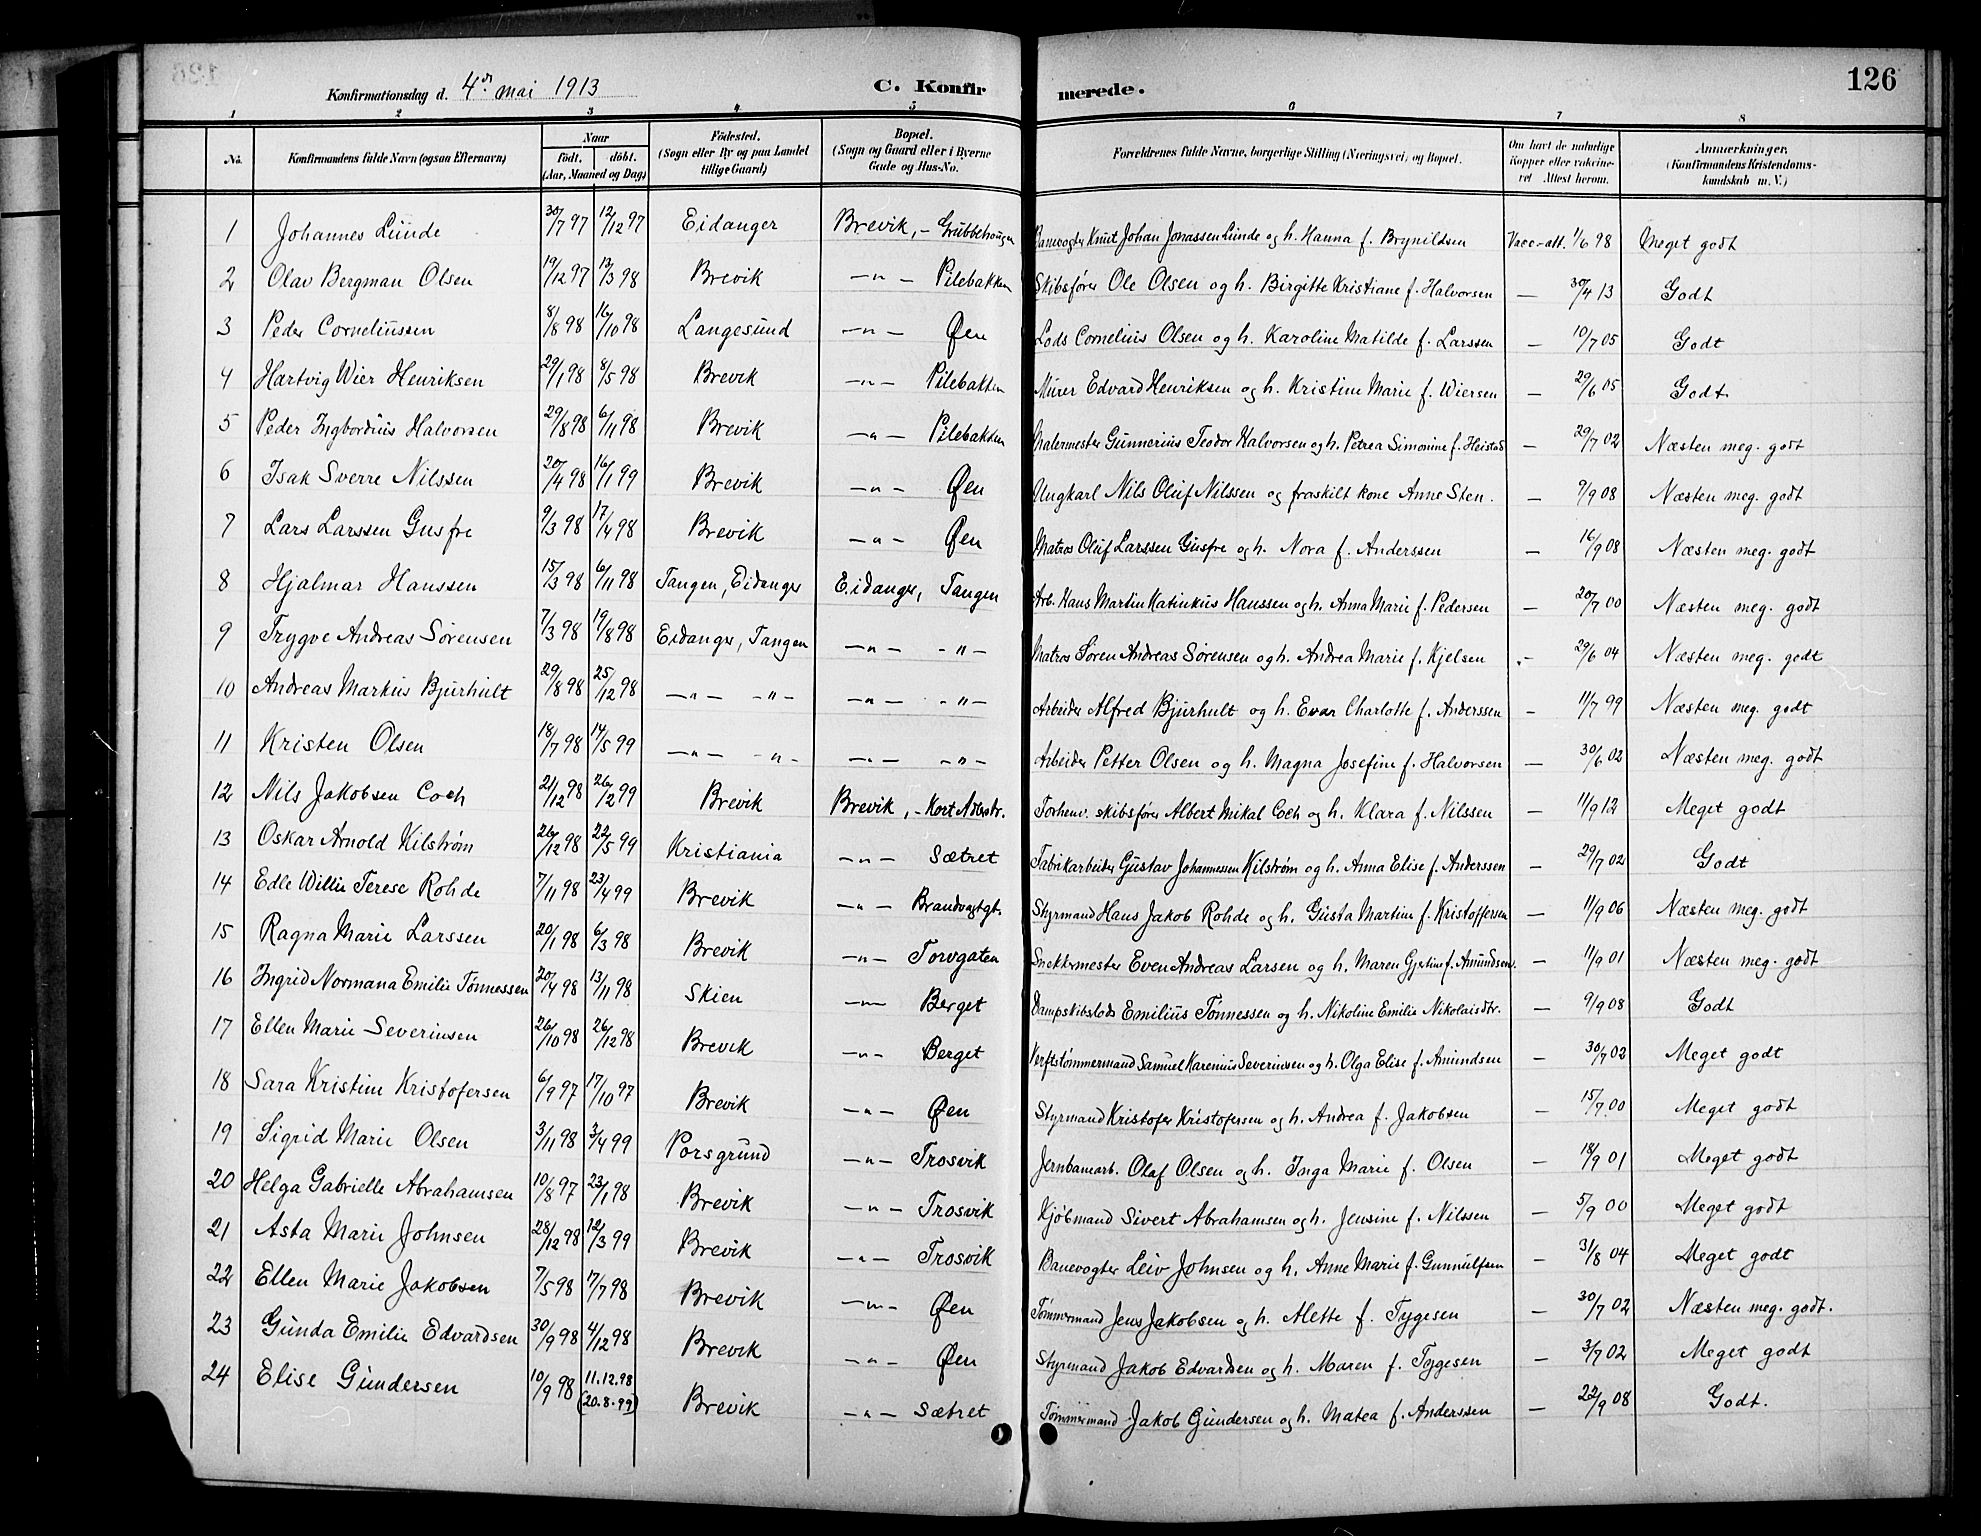 126
Konfirmationsdag d. 4de mai 1913 C. Konfirmerede.
1 2 3 4 5 6 7 8
No. Konfirmandens fulde Navn (ogsaa Efternavn) Naar født. døbt. (Aar, Maaned og Dag) Fødested. (Sogn eller By og paa Landet tillige Gaard) Bopæl. (Sogn og Gaard eller i Byerne Gade og Hus-No. Forældrenes fulde Navne, borgerlige Stilling (Næringsvei) og Bopæl. Om havt de naturlige Kopper eller vakcineret Attest herom. Anmærkninger, (Konfirmandens Kristendomskundskab m. V.)
1 Johannes Lunde 30/7 97 12/12 97 Eidanger Brevik, - Grubbehougen Banevogter Knut Johan Jonassen Lunde og h. Hanna f. Brynildsen Vacc-att. 1/6 98 Meget godt
2 Olav Bergman Olsen 19/12 97 13/3 98 Brevik —"— Pilebakken Skibsfører Ole Olsen og h. Birgitte Kristiane f. Halvorsen — 30/4 13 Godt
3 Peder Corneliussen 8/8 98 16/10 98 Langesund —"— Øen Lods Cornelius Olsen og h. Karoline Matilde f. Larssen — 10/7 05 Godt
4 Hartvig Wier Henriksen 29/1 98 8/5 98 Brevik —"— Pilebakken Murer Edvard Henriksen og h. Kristine Marie f. Wiersen — 29/6 05 Godt
5 Peder Ingbordius Halvorsen 29/8 98 6/11 98 Brevik —"— Pilebakken Malermester Gunnerius Teodor Halvorsen og h. Petrea Simonine f. Heistad — 29/7 02 Næsten meg. godt
6 Isak Sverre Nilssen 20/4 98 16/1 99 Brevik —"— Øen Ungkarl Nils Oluf Nilssen og fraskilt kone Anne Sten. — 9/9 08 Næsten meg. godt
7 Lars Larssen Gusfre 9/3 98 17/4 98 Brevik —"— Øen Matros Oluf Larssen Gusfre og h. Nora f. Anderssen — 16/9 08 Næsten meg. godt
8 Hjalmar Hanssen 15/3 98 6/11 98 Tangen, Eidanger Eidanger, Tangen Arb. Hans Martin Katinkus Hanssen og h. Anna Marie f. Pedersen — 20/7 00 Næsten meg. godt
9 Trygve Andreas Sørensen 7/3 98 19/8 98 Eidanger, Tangen —"— -"- Matros Søren Andreas Sørensen og h. Andrea Marie f. Kjelsen — 29/6 04 Næsten meg. godt
10 Andreas Markus Bjurhult 29/8 98 25/12 98 —"— -"- —"— -"- Arbeider Alfred Bjurhult og h. Evar Charlotte f. Anderssen — 11/7 99 Næsten meg. godt
11 Kristen Olsen 18/7 98 14/5 99 —"— -"- —"— -"- Arbeider Petter Olsen og h. Magna Josefine f. Halvorsen — 30/6 02 Næsten meg. godt
12 Nils Jakobsen Coch 21/12 98 26/2 99 Brevik Brevik, - Kort Adlerstr. Forhenv. skibsfører Albert Mikal Coch og h. Klara f. Nilssen — 11/9 12 Meget godt
13 Oskar Arnold Kilstrøm 26/12 98 22/5 99 Kristiania —"— Sætret Fabrikarbeider Gustav Johannessen Kilstrøm og h. Anna Elise f. Anderssen — 29/7 02 Godt
14 Edle Willie Terese Rohde 7/11 98 23/4 99 Brevik —"— Brandvagtgt. Styrmand Hans Jakob Rohde og h. Gusta Martine f. Kristoffersen — 11/9 06 Næsten meg. godt
15 Ragna Marie Larssen 20/1 98 6/3 98 Brevik —"— Torvgaten Snekkermester Even Andreas Larsen og h. Maren Gjertine f. Amundsen. — 11/9 01 Næsten meg. godt
16 Ingrid Normana Emilie Tønnessen 20/4 98 13/11 98 Skien —"— Berget Dampskibslods Emilius Tønnessen og h. Nikoline Emilie Nikolaisdtr. — 9/9 08 Godt
17 Ellen Marie Severinsen 26/10 98 26/12 98 Brevik —"— Berget Verftstømmermand Samuel Karenius Severinsen og h. Olga Elise f. Amundsen — 30/7 02 Meget godt
18 Sara Kristine Kristofersen 6/9 97 17/10 97 Brevik —"— Øen Styrmand Kristofer Kristofersen og h. Andrea f. Jakobsen — 15/7 00 Meget godt
19 Sigrid Marie Olsen 3/11 98 3/4 99 Porsgrund —"— Trosvik Jernbanearb. Olaf Olsen og h. Inga Marie f. Olsen — 18/9 01 Meget godt
20 Helga Gabrielle Abrahamsen 10/8 97 23/1 98 Brevik —"— Trosvik Kjøbmand Sivert Abrahamsen og h. Jensine f. Nilssen — 5/9 00 Meget godt
21 Asta Marie Johnsen 28/12 98 12/3 99 Brevik —"— Trosvik Banevogter Leiv Johnsen og h. Anne Marie f. Gunnulfsen — 31/8 04 Meget godt
22 Ellen Marie Jakobsen 7/5 98 17/7 98 Brevik —"— Øen Tømmermand Jens Jakobsen og h. Alette f. Tygesen — 30/7 02 Næsten meg. godt.
23 Gunda Emilie Edvardsen 30/9 98 4/12 98 Brevik —"— Øen Styrmand Jakob Edvardsen og h. Maren f. Tygesen — 3/7 02 Meget godt
24 Elise Gundersen 10/9 98 11.12.98 (20.8.99) Brevik —"— Sætret Tømmermand Jakob Gundersen og h. Matea f. Anderssen — 22/9 08 Godt.